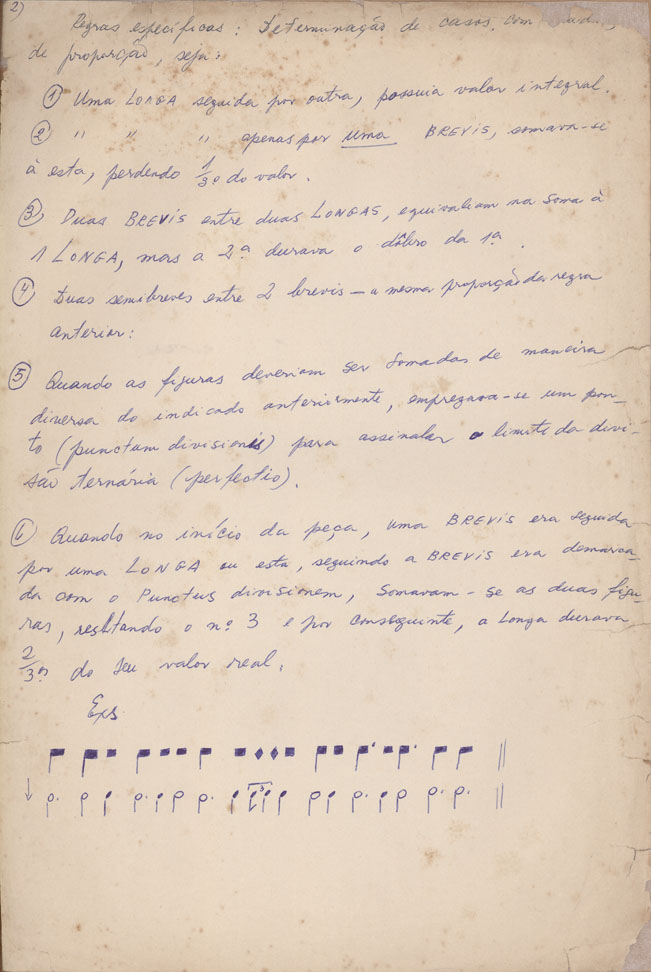 2)
Regras específicas: Determinação de casos, com
de proporção, seja:
① Uma LONGA seguida por outra, possuia valor integral.
② " " " apenas por uma BREVIS, somava-se
à esta, perdendo 1/3º do valor.
③ Duas BREVIS entre duas LONGAS, equivaliam na soma à
1 LONGA, mas a 2ª durava o dôbro da 1ª.
④ Duas semibreves entre 2 brevis — a mesma proporção da regra
anterior:
⑤ Quando as figuras deveriam ser somadas de maneira
diversa do indicado anteriormente, empregava-se um pon-
to (punctam divisionis) para assinalar o limite da divi-
são ternária (perfectio).
⑥ Quando no início da peça, uma BREVIS era seguida
por uma LONGA ou esta, seguindo a BREVIS era demarca-
da com o Punctus divisionem, somavam-se as duas figu-
ras, resltando o nº 3 e por conseguinte, a Longa durava
2/3os do seu valor real.
Exs
3